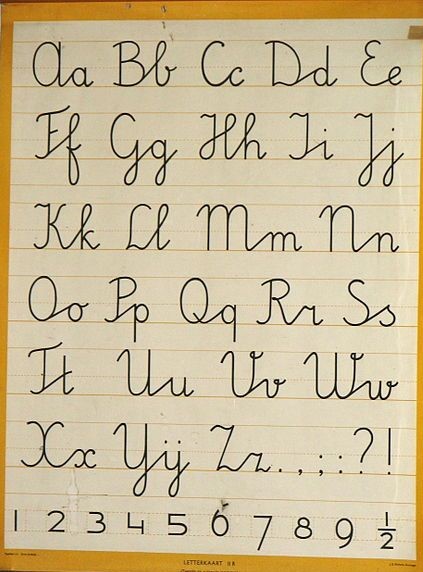 Aa Bb Cc Dd Ee
Ff Gg Hh Ii Jj
Kk Ll Mm Nn
Oo Pp Qq Rr Ss
Tt Uu Vv Ww
Xx Yij Zz . , ; : ? !
1 2 3 4 5 6 7 8 9 ½
LETTERKAART II B